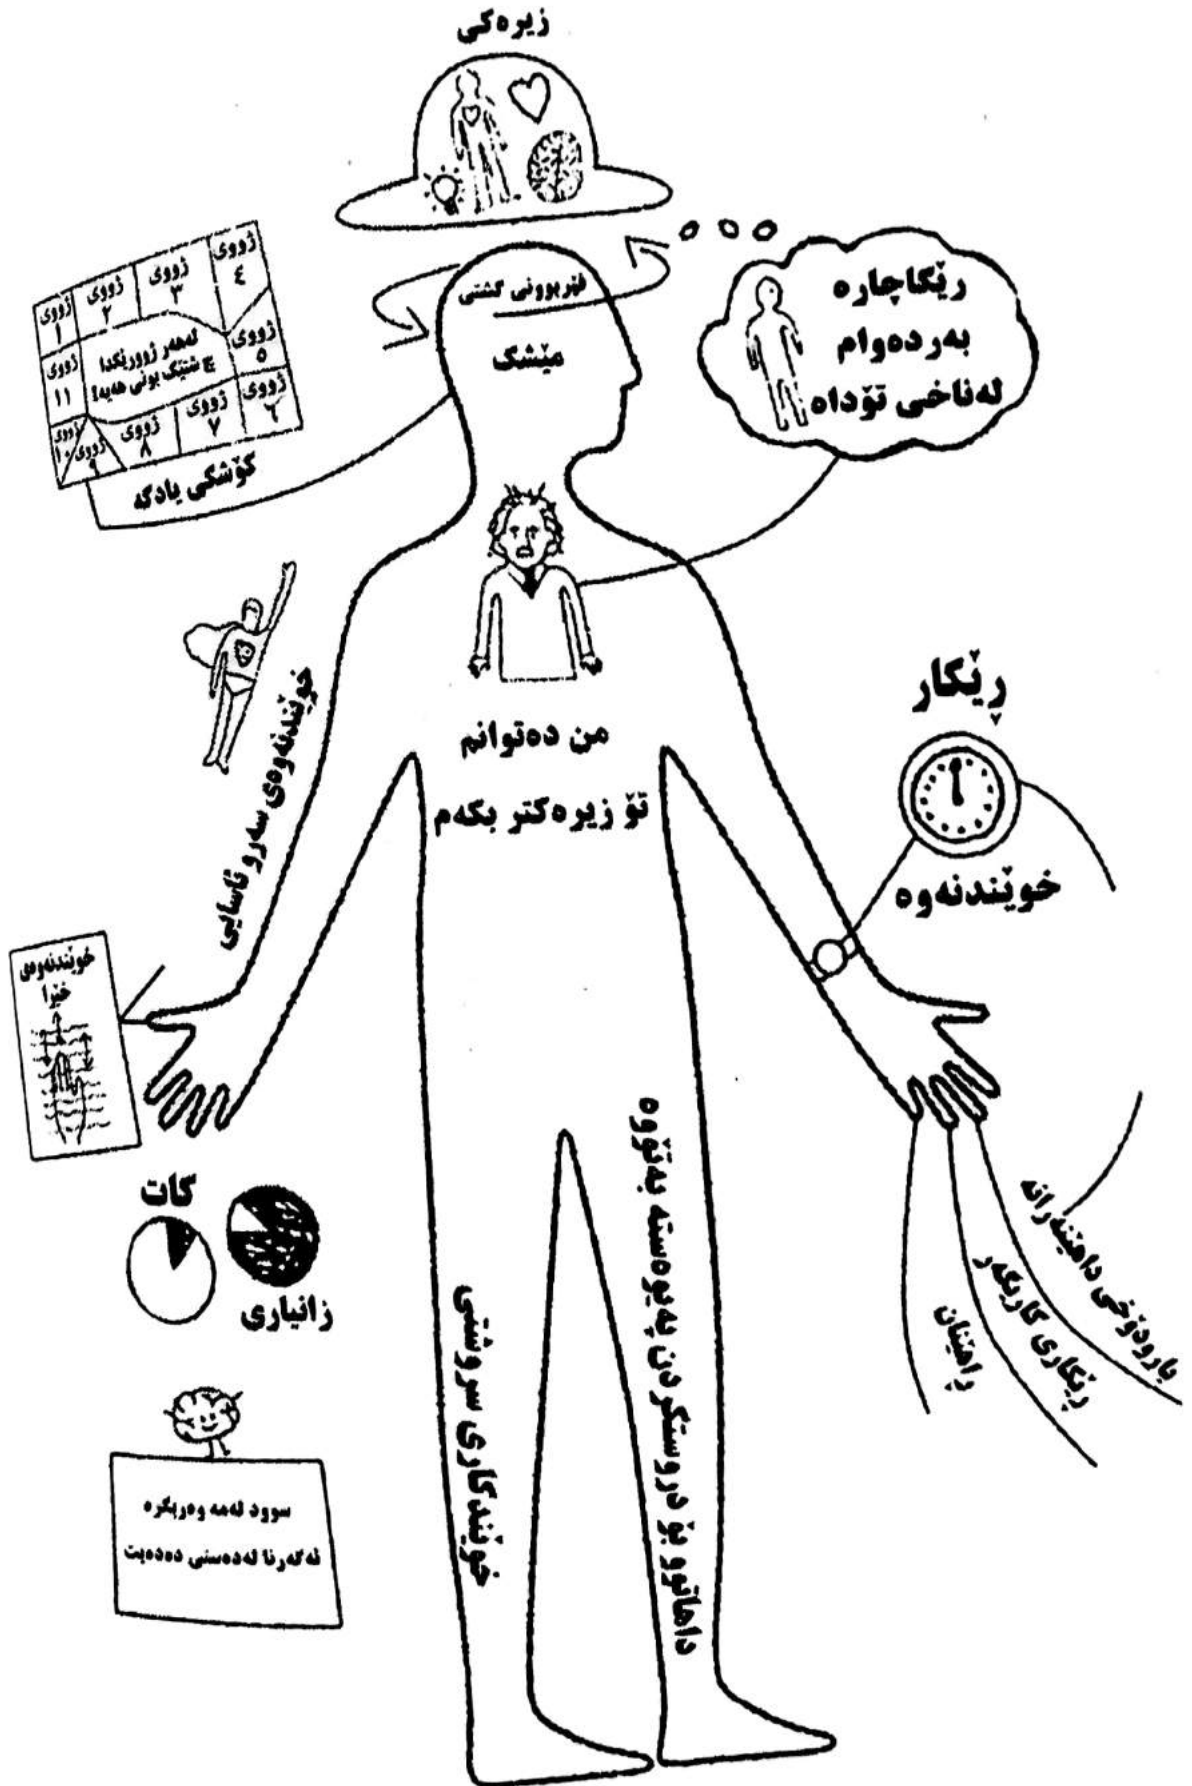 زیرەکی
ژووی ١
ژووی ٢
ژووی ٣
ژووی ٤
ژووی ٥
ژووی ٦
ژووی ٧
ژووی ٨
ژووی ٩
ژووی ١٠
ژووی ١١
لەهەر ژوورێکدا
چ شتێک بونی هەیە؟
کۆشکی یادگە
فێربوونی گشتی
مێشک
رێگاچارە
بەردەوام
لەناخی تۆداە
من دەتوانم
تۆ زیرەکتر بکەم
خوێندنەوەی سەرو ئاسایی
رێکار
خوێندنەوە
خوێندنەوەی
خێرا
کات
زانیاری
سوود لەمە وەربگرە
ئەگەرنا لەدەستی دەدەیت
خوێندکاری سروشتی
داهاتوو بۆ دروستکردن پەیوەستە بەتۆوە
راهێنان
رێکاری کاریگەر
بارودۆخی داهێنەرانە